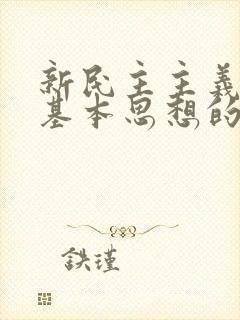 新民主主義
基本思想的
鉄瑾